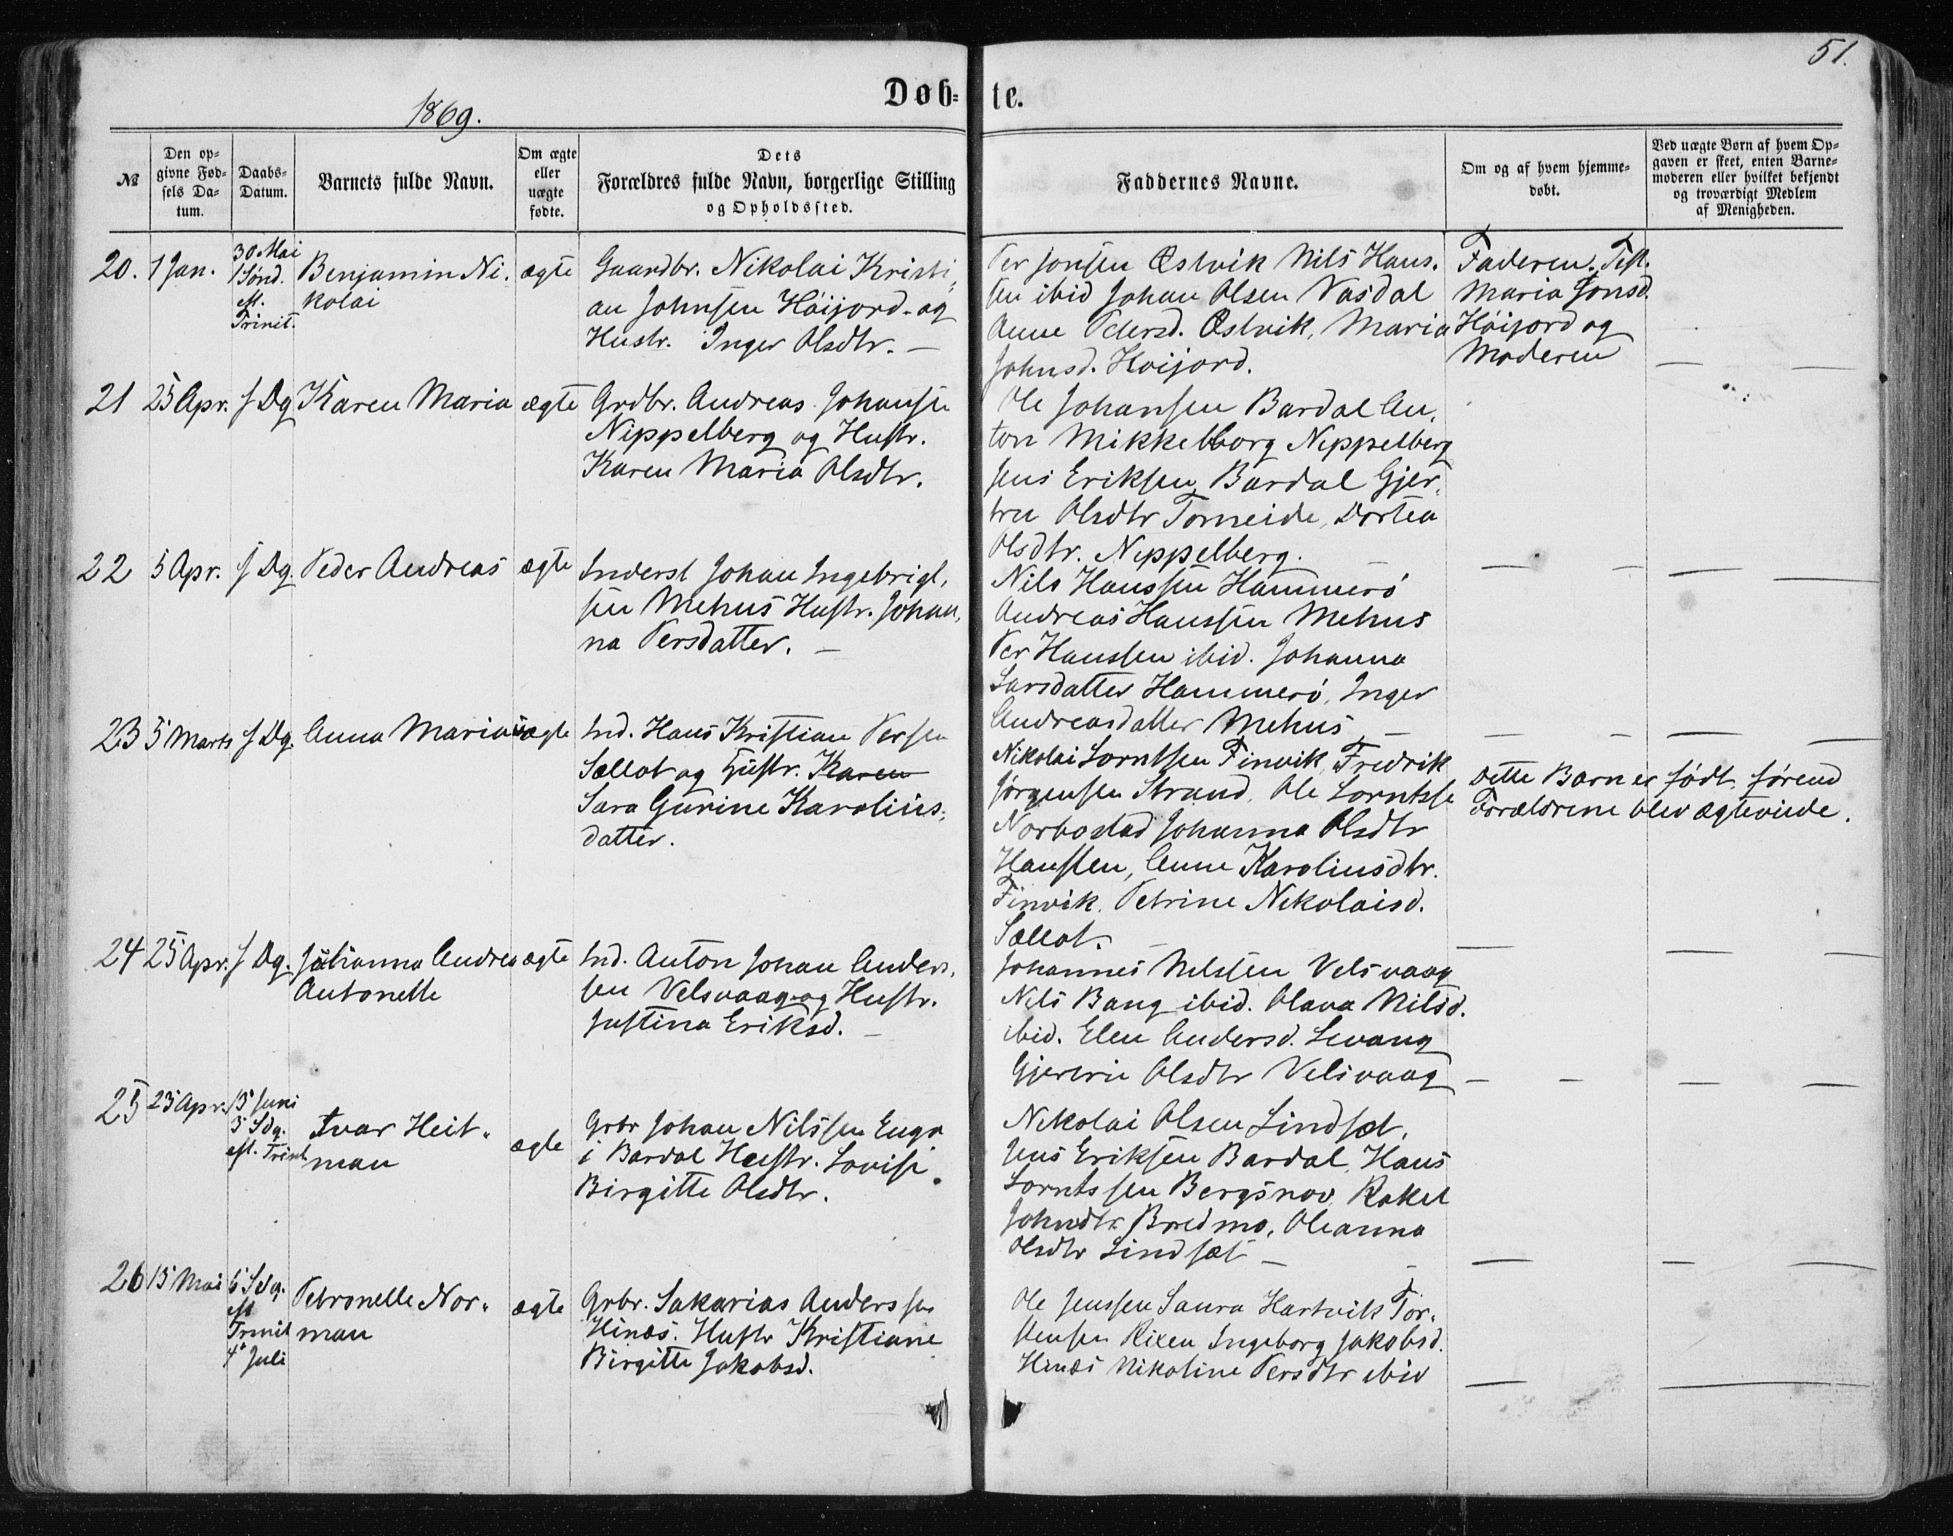 51.
Døb=
te.
1869.
№
Den op=
givne Fød=
sels Da=
tum.
Daabs=
Datum.
Barnets fulde Navn.
Om ægte
eller
uægte
fødte.
Dets
Forældres fulde Navn, borgerlige Stilling
og Opholdssted.
Faddernes Navne.
Om og af hvem hjemme=
døbt.
Ved uægte Børn af hvem Op=
gaven er skeet, enten Barne=
moderen eller hvilket bekjendt
og troværdigt Medlem
af Menigheden.
20. 1 Jan.
30 Mai
1 Sønd.
eft.
Trinit.
Benjamin Ni-
kolai
ægte
Gaardbr. Nikolai Kristi-
an Johnsen Høijord og
Hustr. Inger Olsdtr. —
Per Jonsen Østvik Nils Hans-
sen ibid Johan Olsen Vasdal
Anne Petersd. Østvik, Maria
Johnsd. Høijord.
Faderen. Test.
Maria Jonsd.
Høijord og
Moderen
21 25 Apr. s Dg Karen Maria ægte
Grdbr. Andreas Johansen
Nippelberg og Hustr.
Karen Maria Olsdtr.
Ole Johansen Bardal An-
ton Mikkelborg Nippelberg
Jens Eriksen Bardal Gjer-
tru Olsdtr Torneide, Dortea
Olsdtr. Nippelberg.
22 5 Apr. s Dg. Peder Andreas ægte
Inderst Johan Ingebrigt-
sen Mehus Hustr. Johan-
na Persdatter. —
Nils Hanssen Hammerø
Andreas Hanssen Mehus
Per Hanssen ibid. Johanna
Larsdatter Hammerø, Inger
Andreasdatter Mehus —
23 5 Marts s Dg. Anna Maria ægte
Ind. Hans Kristian Persen
Sellot og Hustr. Karen
Sara Gurine Karolius-
datter.
Nikolai Lorntsen Finvik, Fredrik
Jørgensen Strand, Ole Lorntse
Norbostad Johanna Olsdtr
Hansten, Anne Karoliusdtr.
Finvik. Petrine Nikolaisd.
Sellot.
Dette Barn er født førend
Forældrene blev ægteviede.
24 25 Apr. s Dg. Julianna Andrea ægte
Antonette
Ind. Anton Johan Anders-
sen Velsvaag og Hustr.
Justina Eriksd. —
Johannes Nelssen Velsvaag
Nils Bang ibid. Olava Nilsd.
ibid. Elen Andersd. Levang
Olsdtr Velsvaag
25 23 Apr.
15 Juni
3 Sdg.
eft. Trinit
Ivar Heit-
man
ægte
Grbr Johan Nilssen Engo
i Bardal Hustr. Lovise
Birgitte Olsdtr.
Nikolai Olsen Lindset,
Jens Eriksen Bardal, Hans
Lorntssen Bergsnov, Rakel
Johndtr Bredmo, Oleanna
Olsdtr Lindset —
26 15 Mai
6 Sdg.
eft
Trinit
4 Juli
Petronelle Nor-
man
ægte
Grbr. Sakarias Anderssen
Hinæs. Hustr Kristiane
Birgitte Jakobsd.
Ole Jenssen Saura Hartvik Tor-
stensen Rixen Ingeborg Jakobsd.
Hinæs Nikoline Persdtr ibid